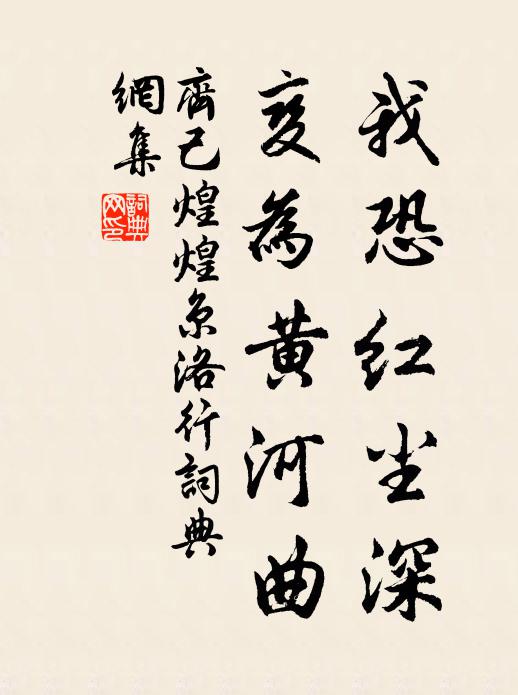 我恐红尘深
变為黄河曲
齊己煌煌京洛行詞典
網集
詞典
网印